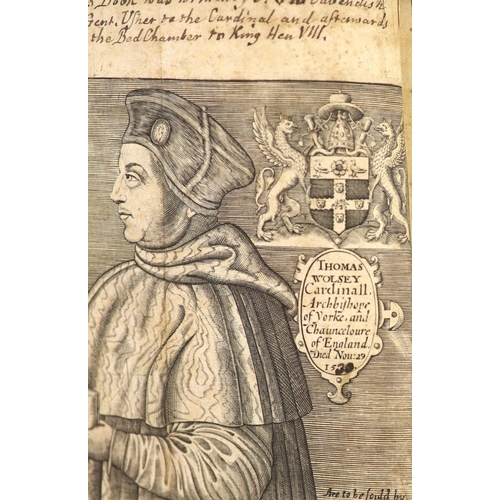 Gent. Usher to the Cardinal and afterwards
the Bed Chamber to King Hen VIII.
THOMAS
WOLSEY
Cardinall.
Archbishope
of Yorke. and
Chaunceloure
of England.
Died Nov: 29
Are to be sould by